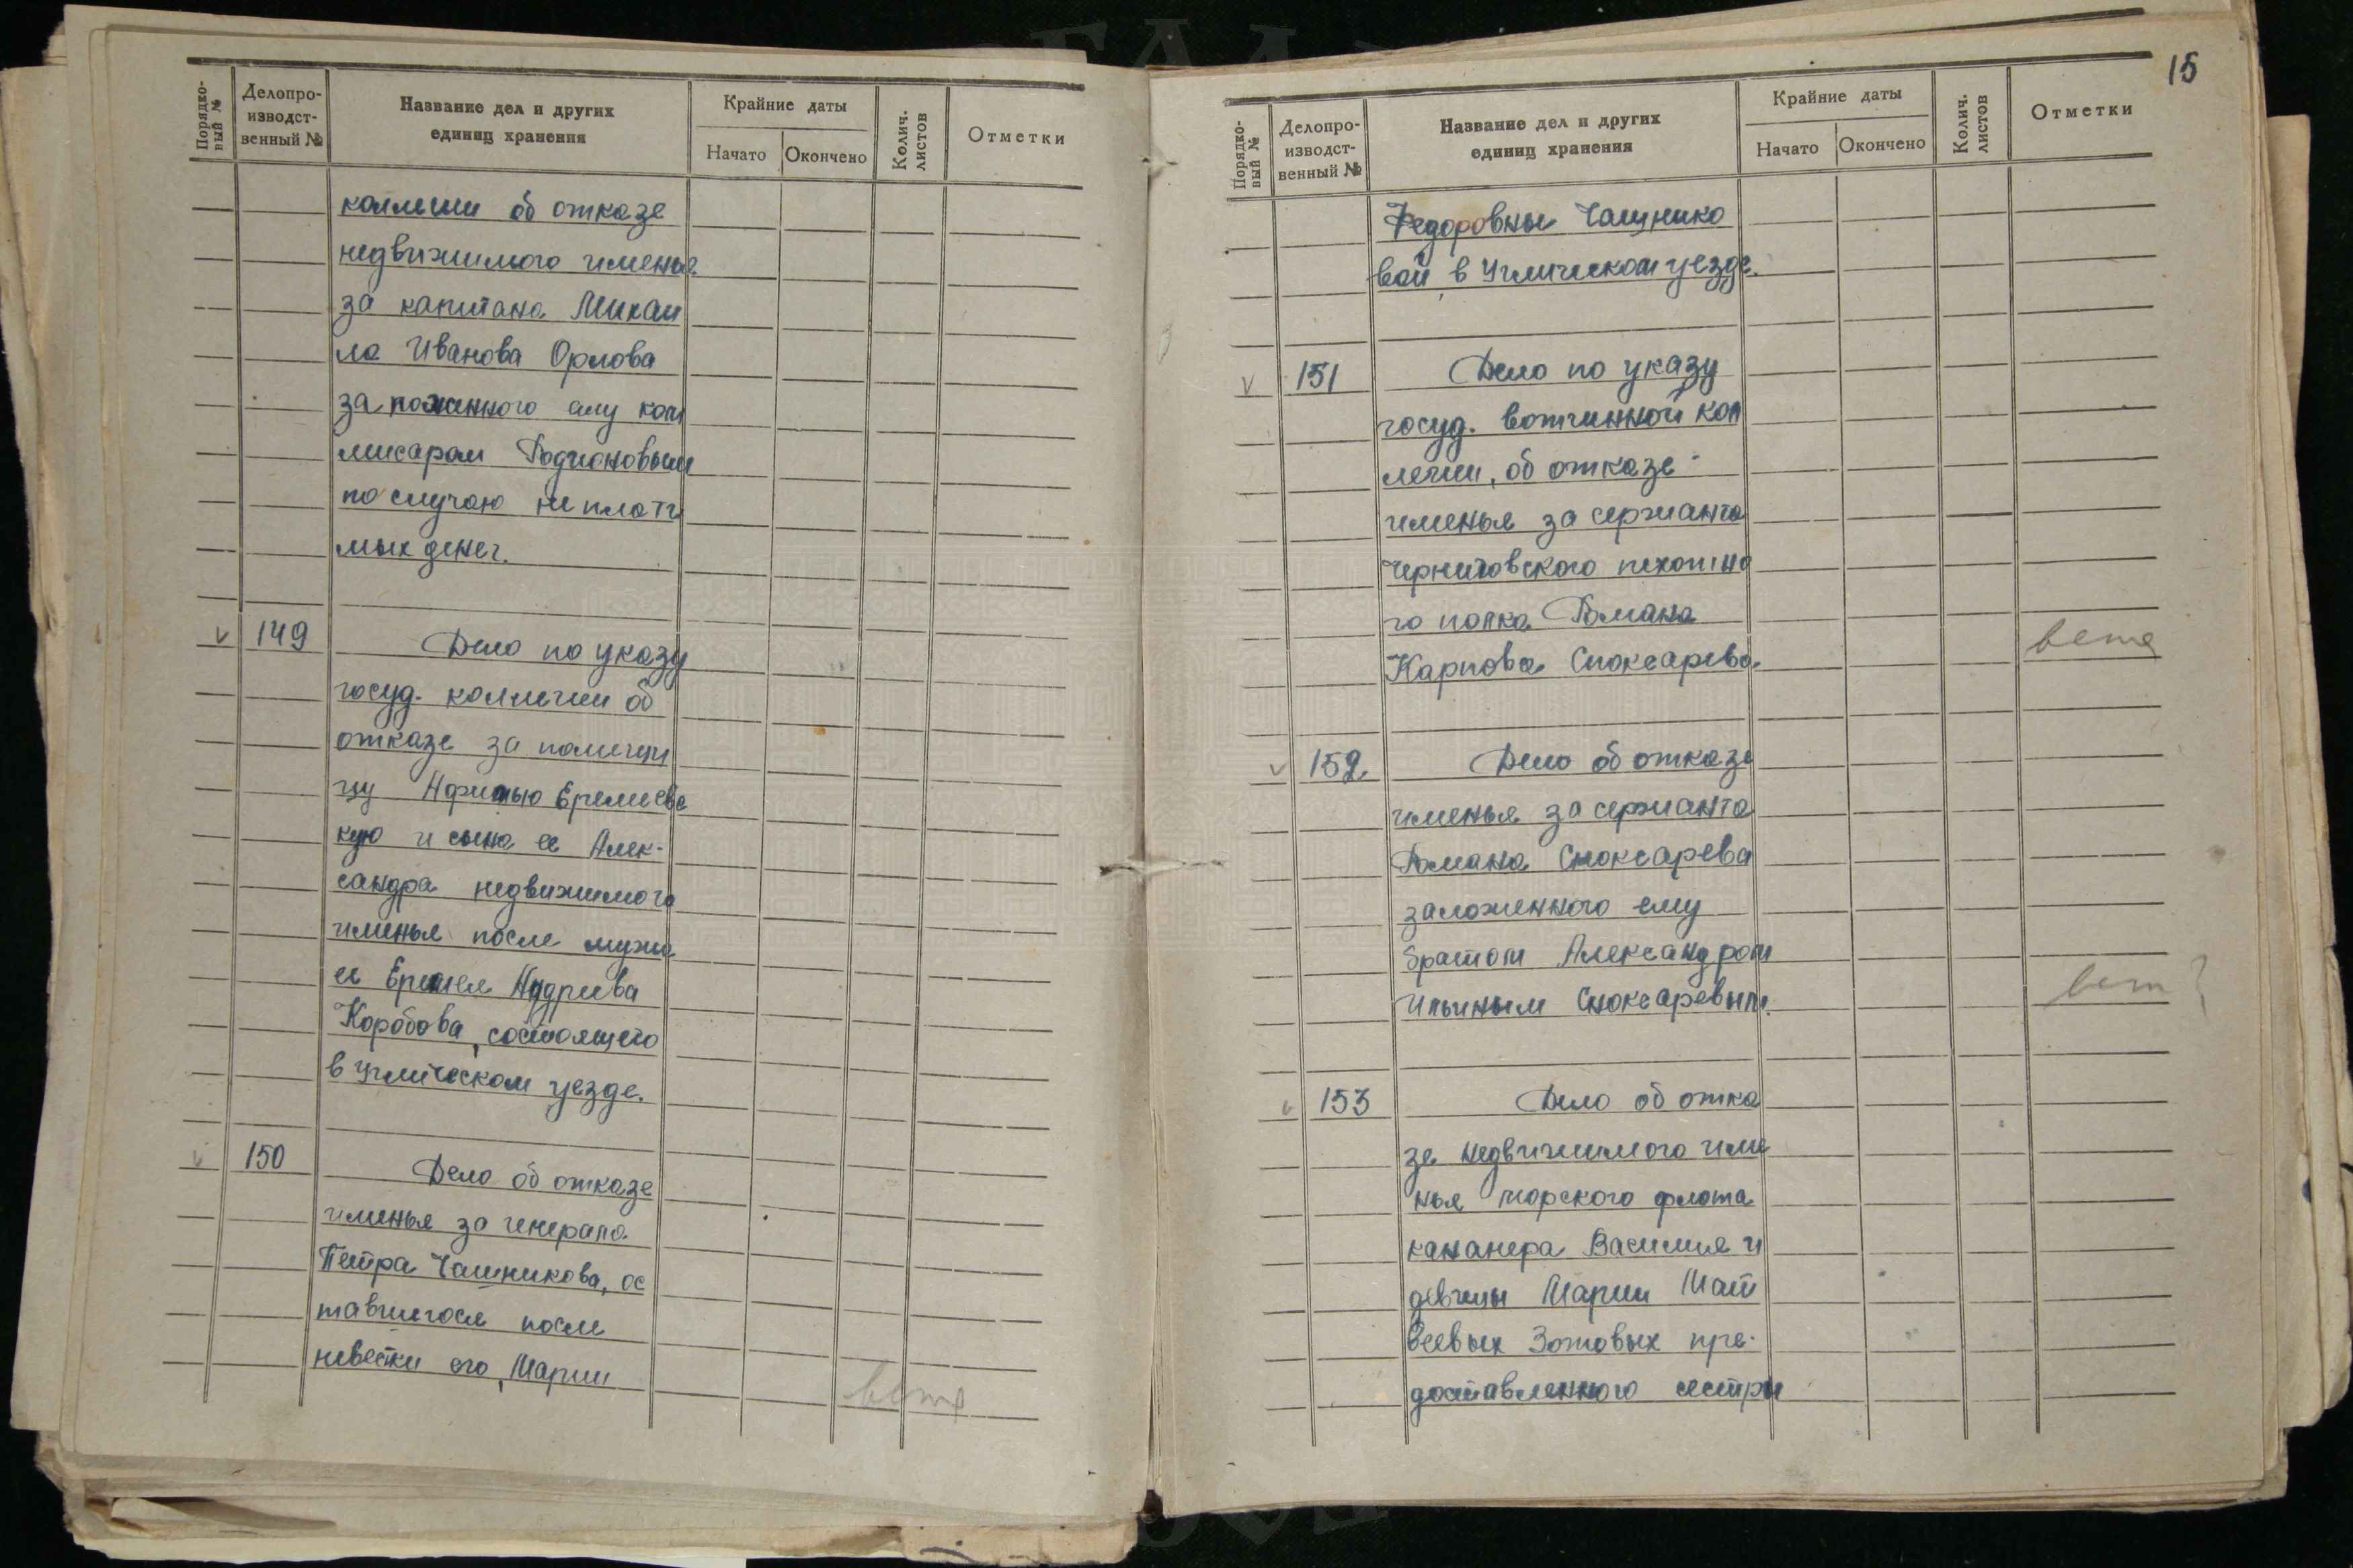 Порядко-
вый №
Делопро-
изводст-
венный №
Название дел и других
единиц хранения
Крайние даты
Начато
Окончено
Колич.
листов
Отметки
коллегии об отказе
недвижимого именья
за капитана Михаи
ла Иванова Орлова
заложенного ему ком
мисаром Родионовым
по случаю не плати
мых денег.
149 Дело по указу
госуд. коллегии об
отказе за помещи
цу Афимью Еремеевс
кую и сына ее Алек-
сандра недвижимого
именья после мужа
ее Еремея Андреева
Коробова, состоящего
в Угличском уезде.
150 Дело об отказе
именья за генерала
Петра Чашникова, ос
тавшегося после
невестки его, Марии
ветх
15
Порядко-
вый №
Делопро-
изводст-
венный №
Название дел и других
единиц хранения
Крайние даты
Начато
Окончено
Колич.
листов
Отметки
Федоровны Чашнико
вой в Угличском уезде.
151 Дело по указу
госуд. вотчинной кол
легии, об отказе
именья за сержанта
Черниговского пехотно
го полка Романа
Карпова Сноксарева.
ветх
152. Дело об отказе
именья за сержанта
Романа Сноксарева
заложенного ему
братом Александром
Ильиным Сноксаревым.
ветх ?
153 Дело об отка
зе недвижимого име
нья морского флота
кананера Василия и
девицы Марии Мат
веевых Зотовых пре-
доставленного сестры